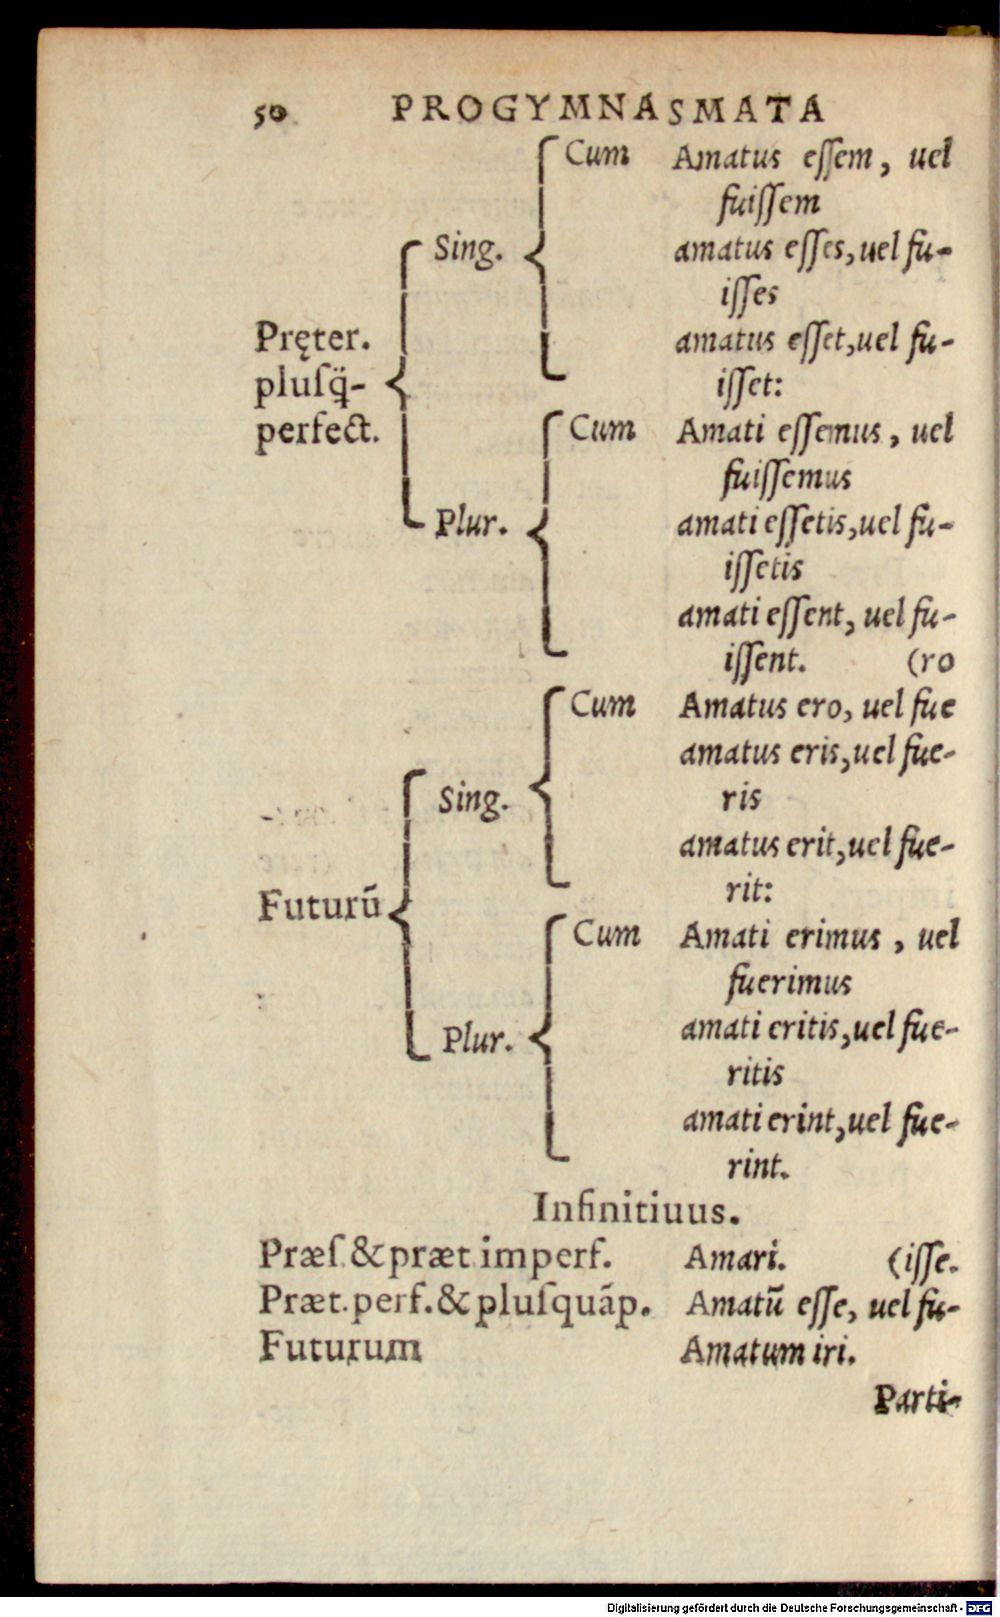 50 PROGYMNASMATA
Cum Amatus eſſem, uel
fuiſſem
Sing. amatus eſſes, uel fu-
iſſes
Pręter. amatus eſſet, uel fu-
pluſq̃- iſſet:
perfect. Cum Amati eſſemus, uel
fuiſſemus
Plur. amati eſſetis, uel fu-
iſſetis
amati eſſent, uel fu-
iſſent. (ro
Cum Amatus ero, uel fue
amatus eris, uel fue-
Sing. ris
amatus erit, uel fue-
rit:
Futurũ
Cum Amati erimus, uel
fuerimus
Plur. amati eritis, uel fue-
ritis
amati erint, uel fue-
rint.
Infinitiuus.
Præſ. & præt imperf. Amari. (iſſe.
Præt. perf. & pluſquãp. Amatũ eſſe, uel fu-
Futurum Amatum iri.
Parti-
Digitalisierung gefördert durch die Deutsche Forschungsgemeinschaft - DFG